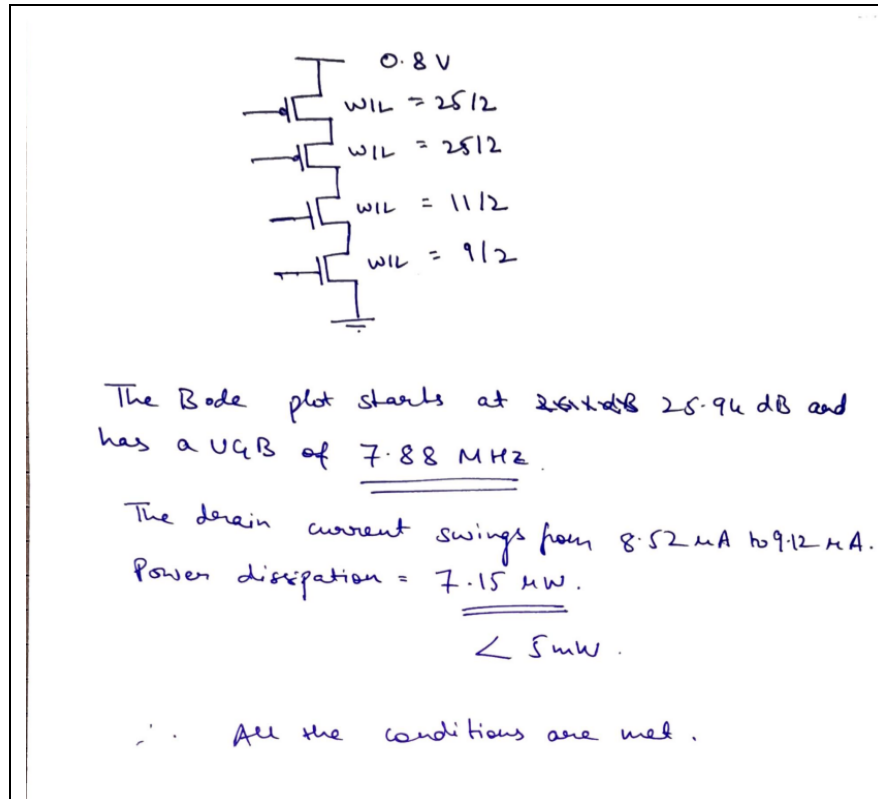 0.8 V
W/L = 25/2
W/L = 25/2
W/L = 11/2
W/L = 9/2
The Bode plot starts at 25.94 dB and
has a UGB of 7.88 MHz.
The drain current swings from 8.52 μA to 9.12 μA.
Power dissipation = 7.15 μW.
< 5mW.
∴ All the conditions are met.